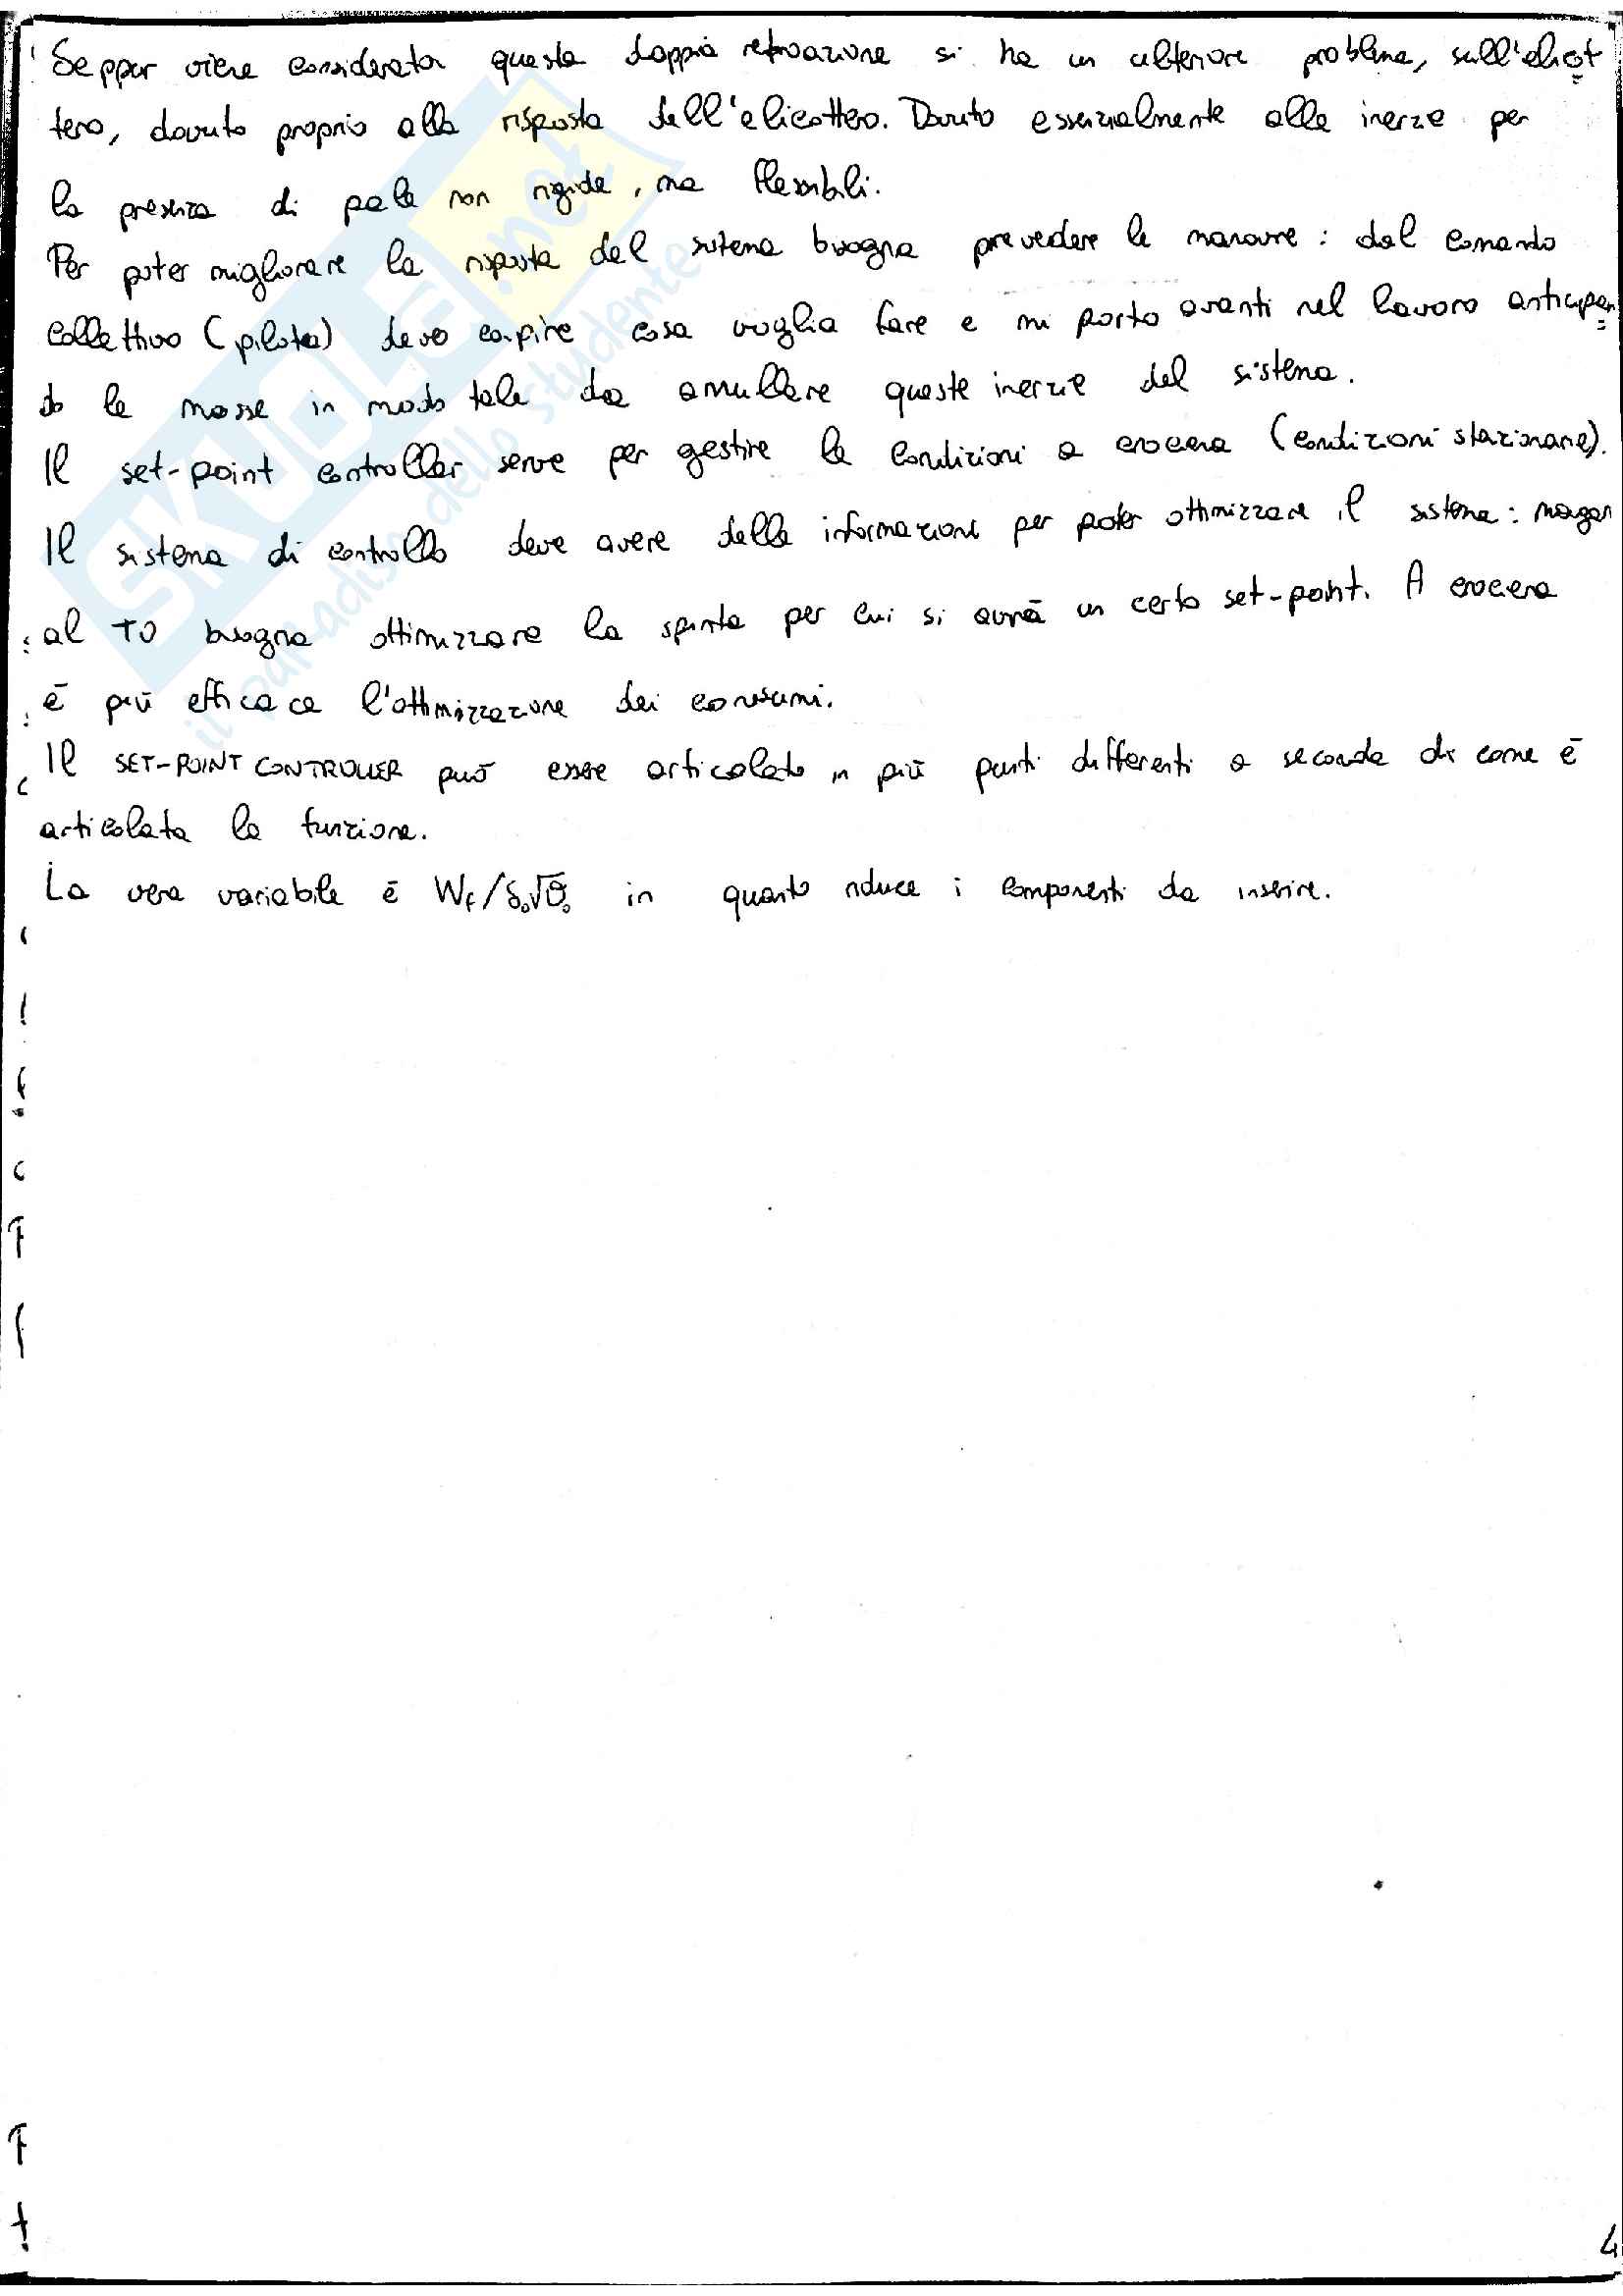 Seppur viene considerata questa doppia retroazione si ha un ulteriore problema, sull'elicot
tero, dovuto proprio alla risposta dell'elicottero. Dovuto essenzialmente alle inerzie per
la presenza di pale non rigide, ma flessibili.
Per poter migliorare la risposta del sistema bisogna prevedere le manovre: dal comando
collettivo (pilota) devo capire cosa voglia fare e mi porto avanti nel lavoro anticipan
do le mosse in modo tale da annullare queste inerzie del sistema.
Il set-point controller serve per gestire le condizioni a crociera (condizioni stazionarie).
Il sistema di controllo deve avere delle informazioni per poter ottimizzare il sistema: magari
al TO bisogna ottimizzare la spinta per cui si avrà un certo set-point. A crociera
è più efficace l'ottimizzazione dei consumi.
Il SET-POINT CONTROLLER può essere articolato in più punti differenti a seconda di come è
articolata la funzione.
La vera variabile è Wf/δ₀√θ₀ in quanto riduce i componenti da inserire.
SKUOLA.net
il paradiso dello studente
4